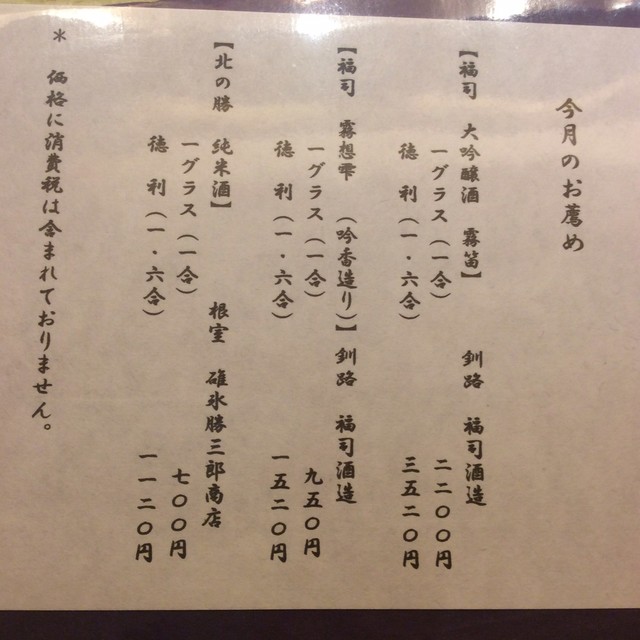 今月のお薦め
【福司 大吟醸酒 霧笛】 釧路 福司酒造
一グラス(一合) 二二〇〇円
徳利(一・六合) 三五二〇円
【福司 霧想雫 (吟香造り)】 釧路 福司酒造
一グラス(一合) 九五〇円
徳利(一・六合) 一五二〇円
【北の勝 純米酒】 根室 碓氷勝三郎商店
一グラス(一合) 七〇〇円
徳利(一・六合) 一一二〇円
* 価格に消費税は含まれておりません。